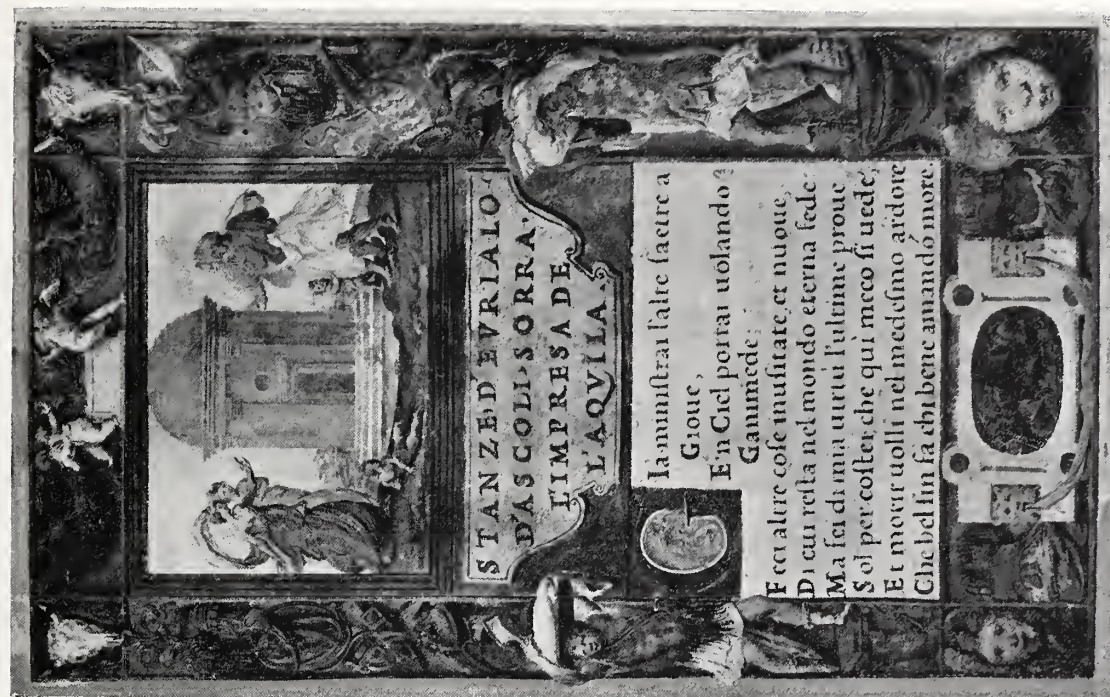 STANZE·D'EVRIALO·
D'ASCOLI·SOPRA·
L'IMPRESA DE
L'AQVILA.
Ia ministrai l'alte saette a
Gioue,
E'n Ciel portai uolando
Ganimede;
Feci altre cose inusitate, et nuoue,
Di cui resta nel mondo eterna fede.
Ma fei di mia uirtù l'ultime proue
Sol per costei, che qui meco si uede,
Et morir uolli nel medesmo ardore
Che bel fin fa chi bene amando more.